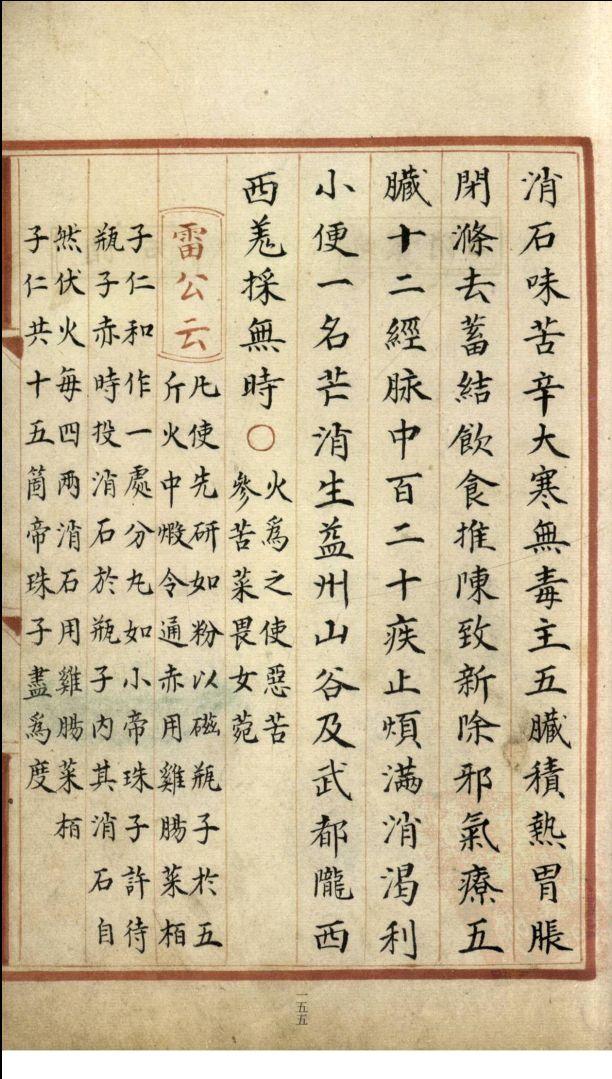 消石味苦辛大寒無毒主五臟積熱胃脹
閉滌去蓄結飲食推陳致新除邪氣療五
臟十二經脉中百二十疾止煩滿消渴利
小便一名芒消生益州山谷及武都隴西
西羗採無時〇
火爲之使惡苦
參苦菜畏女菀
雷公云
凡使先研如粉以磁瓶子於五
斤火中煅令通赤用雞腸菜栢
子仁和作一處分丸如小帝珠子許待
瓶子赤時投消石於瓶子內其消石自
然伏火每四两消石用雞腸菜栢
子仁共十五箇帝珠子盡爲度
一五五